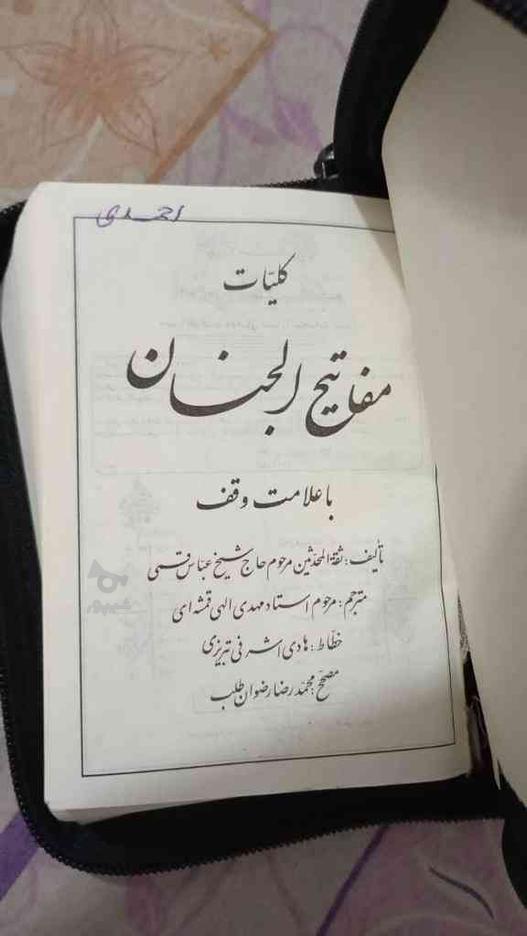 احمدی
کلیّات
مفاتیح الجنان
با علامت وقف
تألیف: ثقة المحدثین مرحوم حاج شیخ عباس قمی
مترجم: مرحوم استاد مهدی الهی قمشه‌ای
خطّاط: هادی اشرفی تبریزی
مصحّح: محمّدرضا رضوان طلب